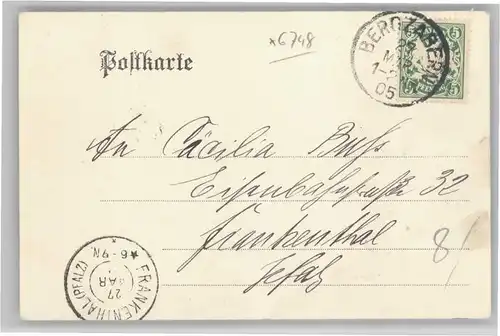 *6748
Postkarte
BERGZABERN
1-2
05
5 5
5 5
An Cäcilia Buhs
Eisenbahnstraße 32
Frankenthal
Pfalz
8/
FRANKENTHAL (PFALZ)
27
MAR
★ 6-7N